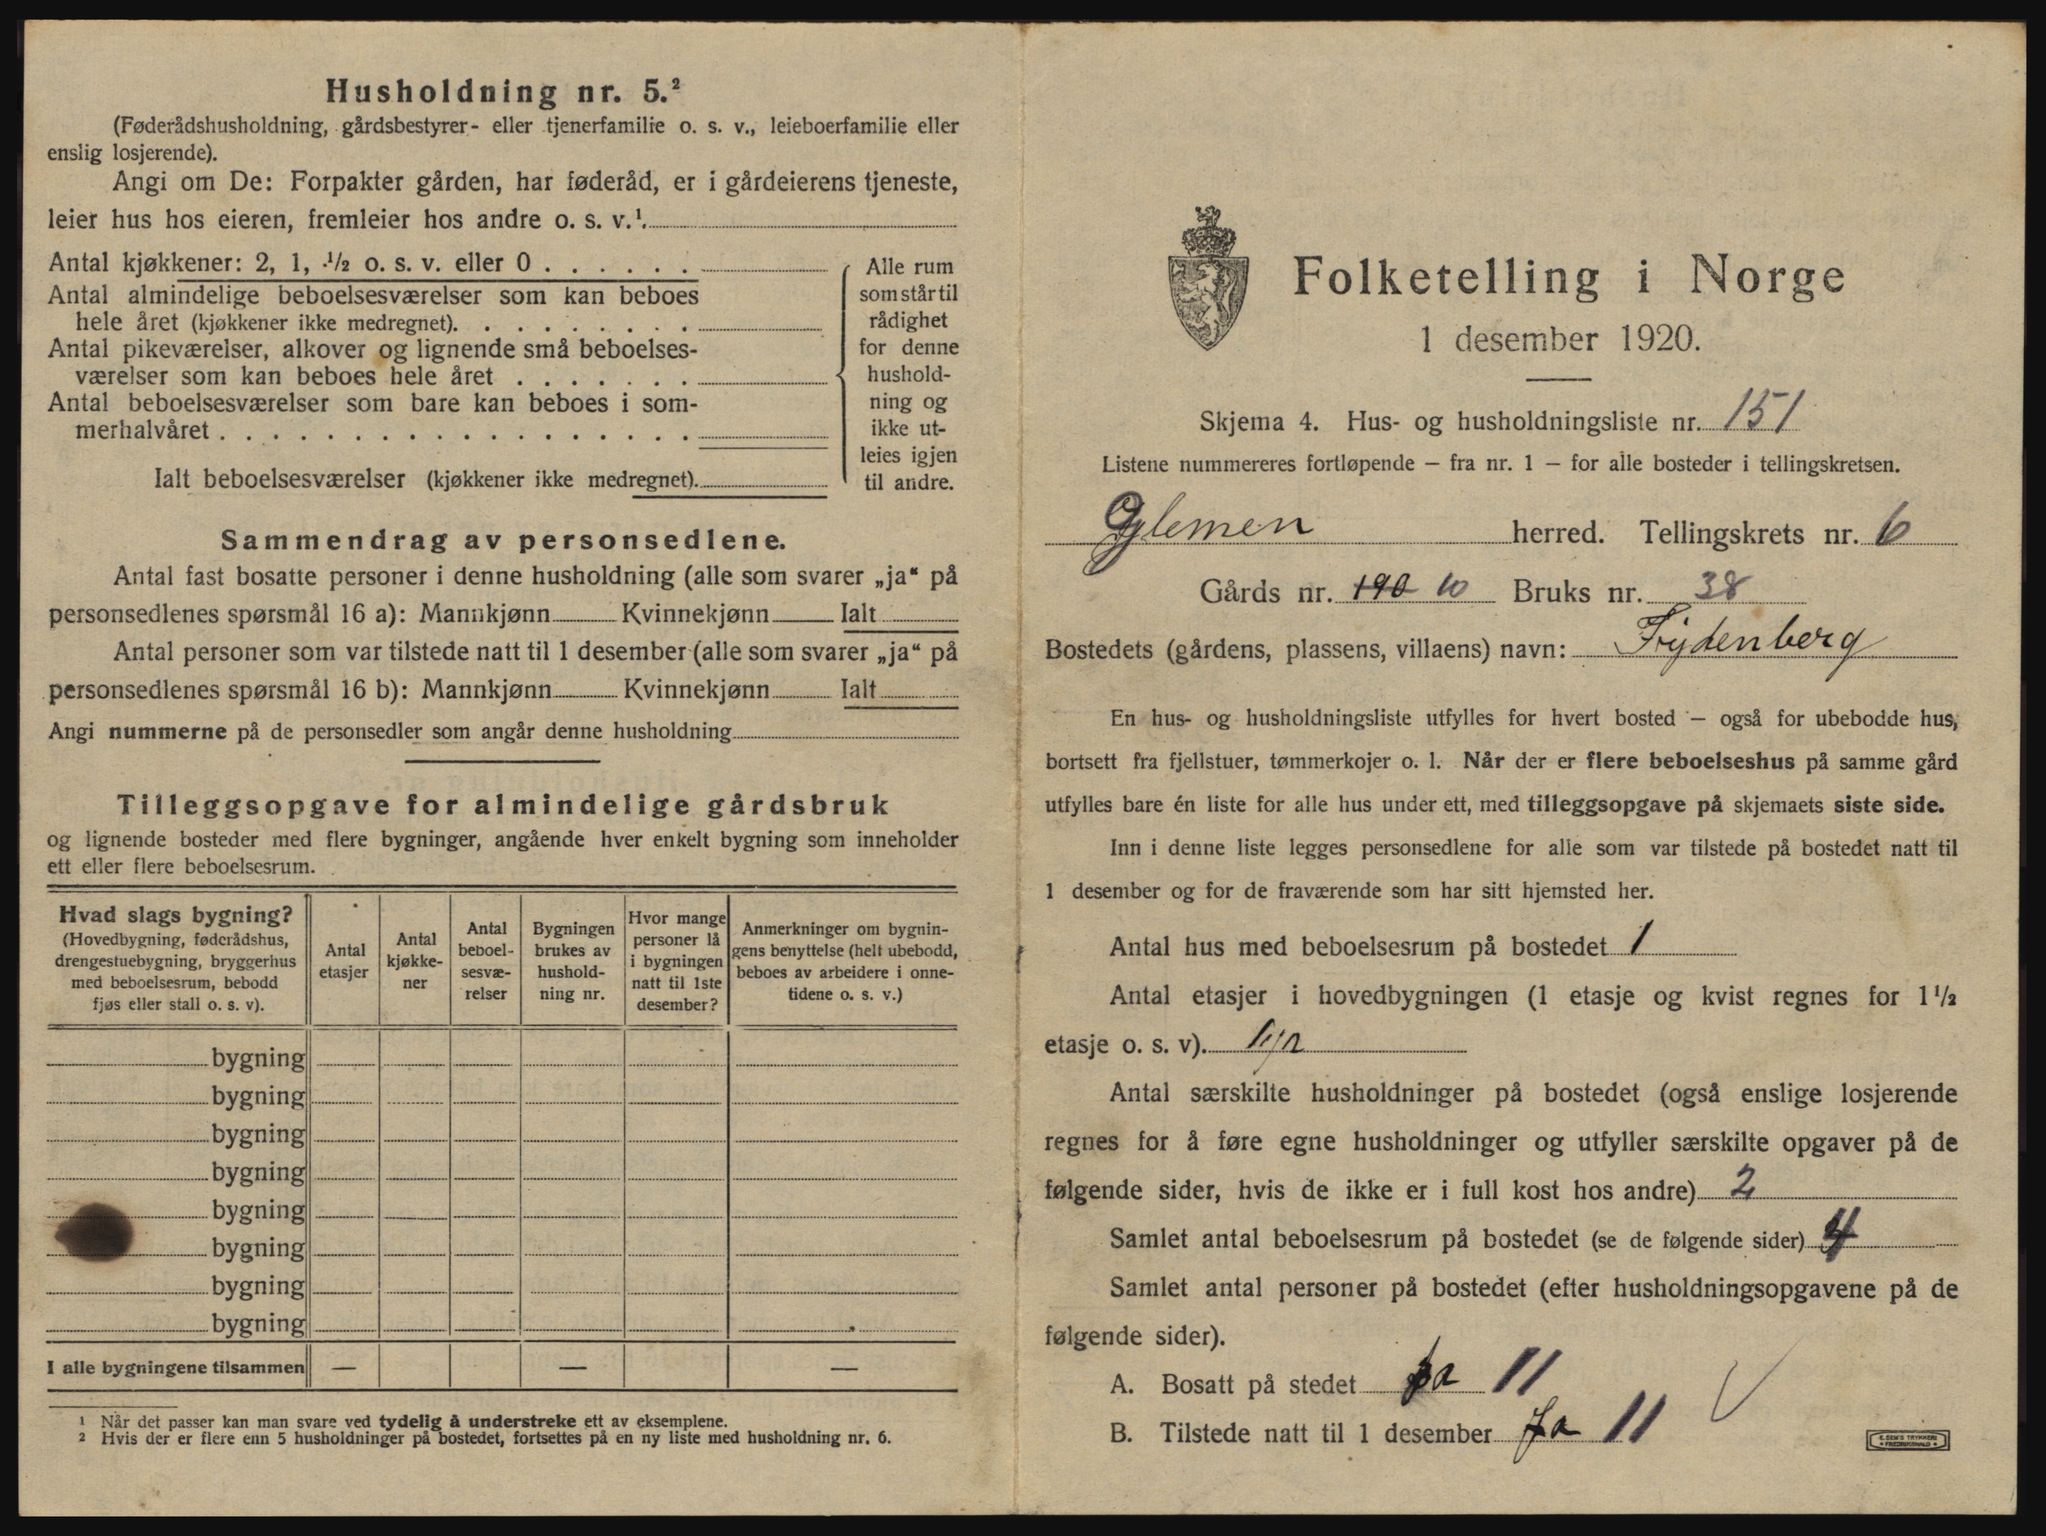 Husholdning nr. 5.²
(Føderådshusholdning, gårdsbestyrer- eller tjenerfamilie o. s. v., leieboerfamilie eller
enslig losjerende).
Angi om De: Forpakter gården, har føderåd, er i gårdeierens tjeneste,
leier hus hos eieren, fremleier hos andre o. s. v.¹.
Antal kjøkkener: 2, 1, ½ o. s. v. eller 0 . . . . . .
Antal almindelige beboelsesværelser som kan beboes
hele året (kjøkkener ikke medregnet). . . . . . . . .
Antal pikeværelser, alkover og lignende små beboelses-
værelser som kan beboes hele året . . . . . . .
Antal beboelsesværelser som bare kan beboes i som-
merhalvåret . . . . . . . . . . . . . . . . . .
Ialt beboelsesværelser (kjøkkener ikke medregnet).
Alle rum
som står til
rådighet
for denne
hushold-
ning og
ikke ut-
leies igjen
til andre.
Sammendrag av personsedlene.
Antal fast bosatte personer i denne husholdning (alle som svarer „ja“ på
personsedlenes spørsmål 16 a): Mannkjønn Kvinnekjønn Ialt
Antal personer som var tilstede natt til 1 desember (alle som svarer „ja“ på
personsedlenes spørsmål 16 b): Mannkjønn Kvinnekjønn Ialt
Angi nummerne på de personsedler som angår denne husholdning
Tilleggsopgave for almindelige gårdsbruk
og lignende bosteder med flere bygninger, angående hver enkelt bygning som inneholder
ett eller flere beboelsesrum.
Hvad slags bygning?
(Hovedbygning, føderådshus,
drengestuebygning, bryggerhus
med beboelsesrum, bebodd
fjøs eller stall o. s. v).
Antal
etasjer
Antal
kjøkke-
ner
Antal
beboel-
sesvæ-
relser
Bygningen
brukes av
hushold-
ning nr.
Hvor mange
personer lå
i bygningen
natt til 1ste
desember?
Anmerkninger om bygnin-
gens benyttelse (helt ubebodd,
beboes av arbeidere i onne-
tidene o. s. v.)
bygning
bygning
bygning
bygning
bygning
bygning
bygning
bygning
I alle bygningene tilsammen — — —
¹ Når det passer kan man svare ved tydelig å understreke ett av eksemplene.
² Hvis der er flere enn 5 husholdninger på bostedet, fortsettes på en ny liste med husholdning nr. 6.
Folketelling i Norge
1 desember 1920.
Skjema 4. Hus- og husholdningsliste nr. 151
Listene nummereres fortløpende – fra nr. 1 – for alle bosteder i tellingskretsen.
Glemen herred. Tellingskrets nr. 6
Gårds nr. 190 10 Bruks nr. 38
Bostedets (gårdens, plassens, villaens) navn: Frydenberg
En hus- og husholdningsliste utfylles for hvert bosted – også for ubebodde hus,
bortsett fra fjellstuer, tømmerkojer o. l. Når der er flere beboelseshus på samme gård
utfylles bare én liste for alle hus under ett, med tilleggsopgave på skjemaets siste side.
Inn i denne liste legges personsedlene for alle som var tilstede på bostedet natt til
1 desember og for de fraværende som har sitt hjemsted her.
Antal hus med beboelsesrum på bostedet 1
Antal etasjer i hovedbygningen (1 etasje og kvist regnes for 1½
etasje o. s. v). 1 1/2
Antal særskilte husholdninger på bostedet (også enslige losjerende
regnes for å føre egne husholdninger og utfyller særskilte opgaver på de
følgende sider, hvis de ikke er i full kost hos andre) 2
Samlet antal beboelsesrum på bostedet (se de følgende sider) 4
Samlet antal personer på bostedet (efter husholdningsopgavene på de
følgende sider).
A. Bosatt på stedet ja 11
B. Tilstede natt til 1 desember ja 11
E. SEM'S TRYKKERI
FREDRIKSHALD